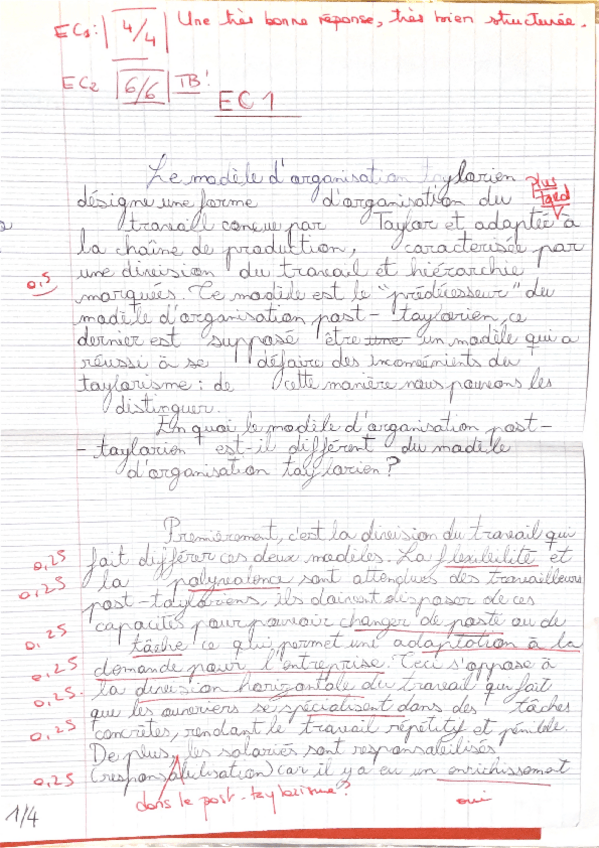 EC1: 4/4 Une très bonne réponse, très bien structurée.
EC2 6/6 TB!
EC1
Le modèle d'organisation taylorien
désigne une forme d'organisation du plus tard
travail concue par Taylor et adaptée à
la chaîne de production, caractérisée par
une division du travail et hiérarchie
0,5 marquées. Ce modèle est le "prédécesseur" du
modèle d'organisation post-taylorien, ce
dernier est supposé être un modèle qui a
réussi à se défaire des inconvénients du
taylorisme : de cette manière nous pouvons les
distinguer.
En quoi le modèle d'organisation post-
-taylorien est-il différent du modèle
d'organisation taylorien ?
Premièrement, c'est la division du travail qui
0,25 fait différer ces deux modèles. La flexibilité et
0,25 la polyvalence sont attendues des travailleurs
post-tayloriens, ils doivent disposer de ces
capacités pour pouvoir changer de poste ou de
0,25 tâche ce qui permet une adaptation à la
0,25 demande pour l'entreprise. Ceci s'oppose à
0,25. la division horizontale du travail qui fait
que les ouvriers se spécialisent dans des tâches
0,25 concrètes, rendant le travail répétitif et pénible.
De plus, les salariés sont responsabilisés
0,25 (responsabilisation) car il y a eu un enrichissement
dans le post-taylorisme ? oui
1/4